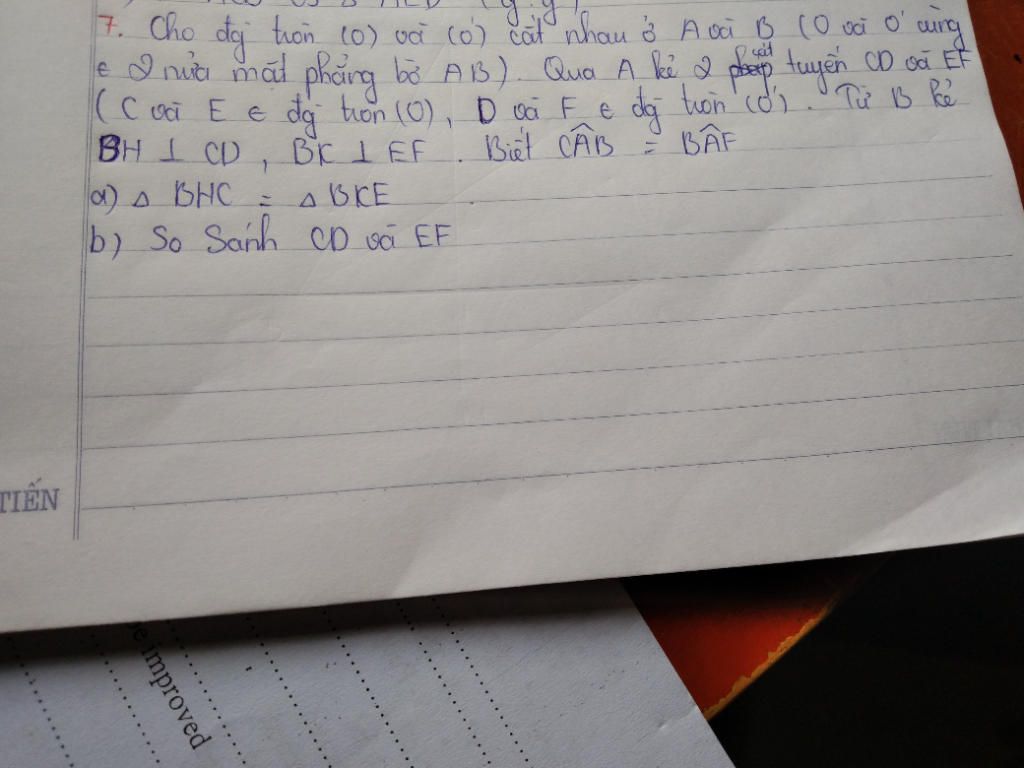 7. Cho đg tròn (O) và (O') cắt nhau ở A và B (O và O' cùng
∈ 2 nửa mặt phẳng bờ AB). Qua A kẻ 2 cát tuyến CD và EF
(C và E ∈ đg tròn (O), D và F ∈ đg tròn (O'). Từ B kẻ
BH ⊥ CD, BK ⊥ EF. Biết CÂB = BÂF
a) △ BHC = △ BKE
b) So Sánh CD và EF
TIẾN
improved